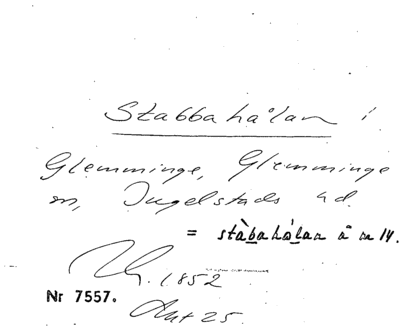 Stabbahålan i
Glemminge, Glemminge
sn, Ingelstads hd.
= stàbahålan å n 14.
1852
Nr 7557.
Ant 25